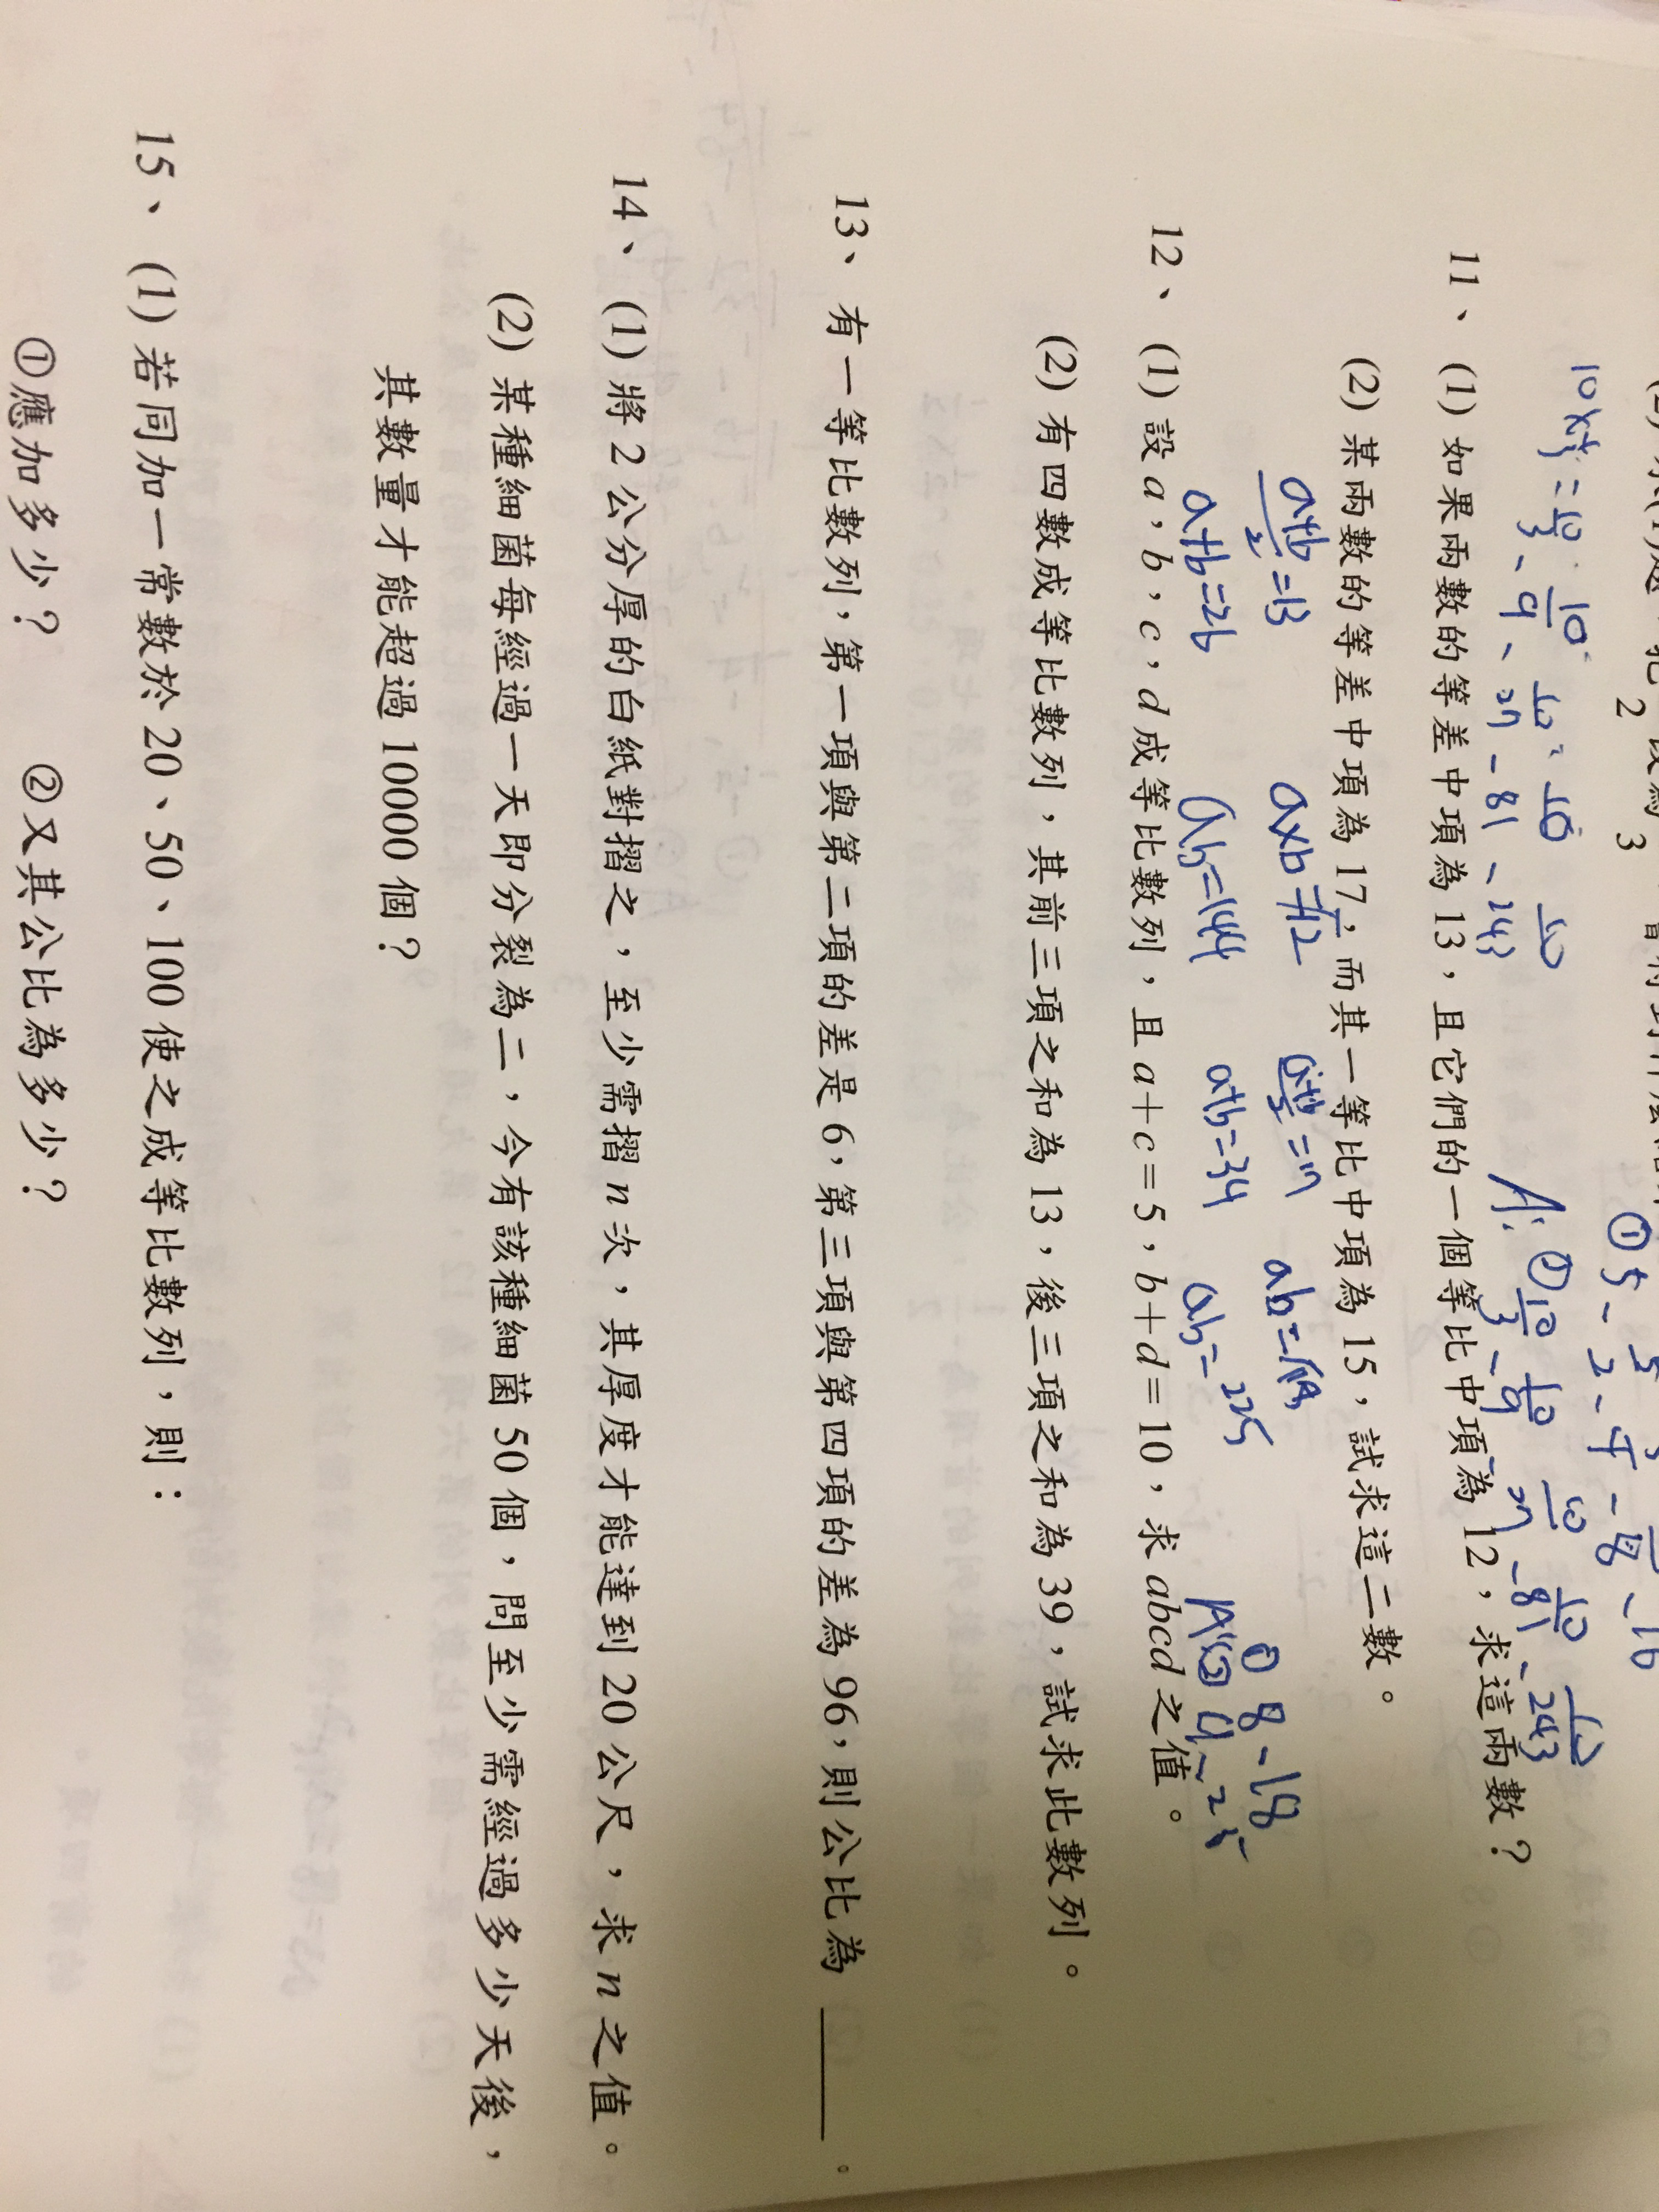 2 3
① 5、
10×⅓=10/3、10/9、10/27、10/81、10/243
A: ② 10/3、10/9、10/27、10/81、10/243
11、(1) 如果兩數的等差中項為 13，且它們的一個等比中項為 12，求這兩數？
(2) 某兩數的等差中項為 17，而其一等比中項為 15，試求這二數。
a+b/2=13 a×b=±12 a+b/2=17 ab=√15 ① 8、18
a+b=26 ab=144 a+b=34 ab=225 A: ② 9、25
12、(1) 設 a，b，c，d 成等比數列，且 a＋c＝5，b＋d＝10，求 abcd 之值。
(2) 有四數成等比數列，其前三項之和為 13，後三項之和為 39，試求此數列。
13、有一等比數列，第一項與第二項的差是 6，第三項與第四項的差為 96，則公比為 ＿＿＿。
14、(1) 將 2 公分厚的白紙對摺之，至少需摺 n 次，其厚度才能達到 20 公尺，求 n 之值。
(2) 某種細菌每經過一天即分裂為二，今有該種細菌 50 個，問至少需經過多少天後，
其數量才能超過 10000 個？
15、(1) 若同加一常數於 20、50、100 使之成等比數列，則：
①應加多少？ ②又其公比為多少？